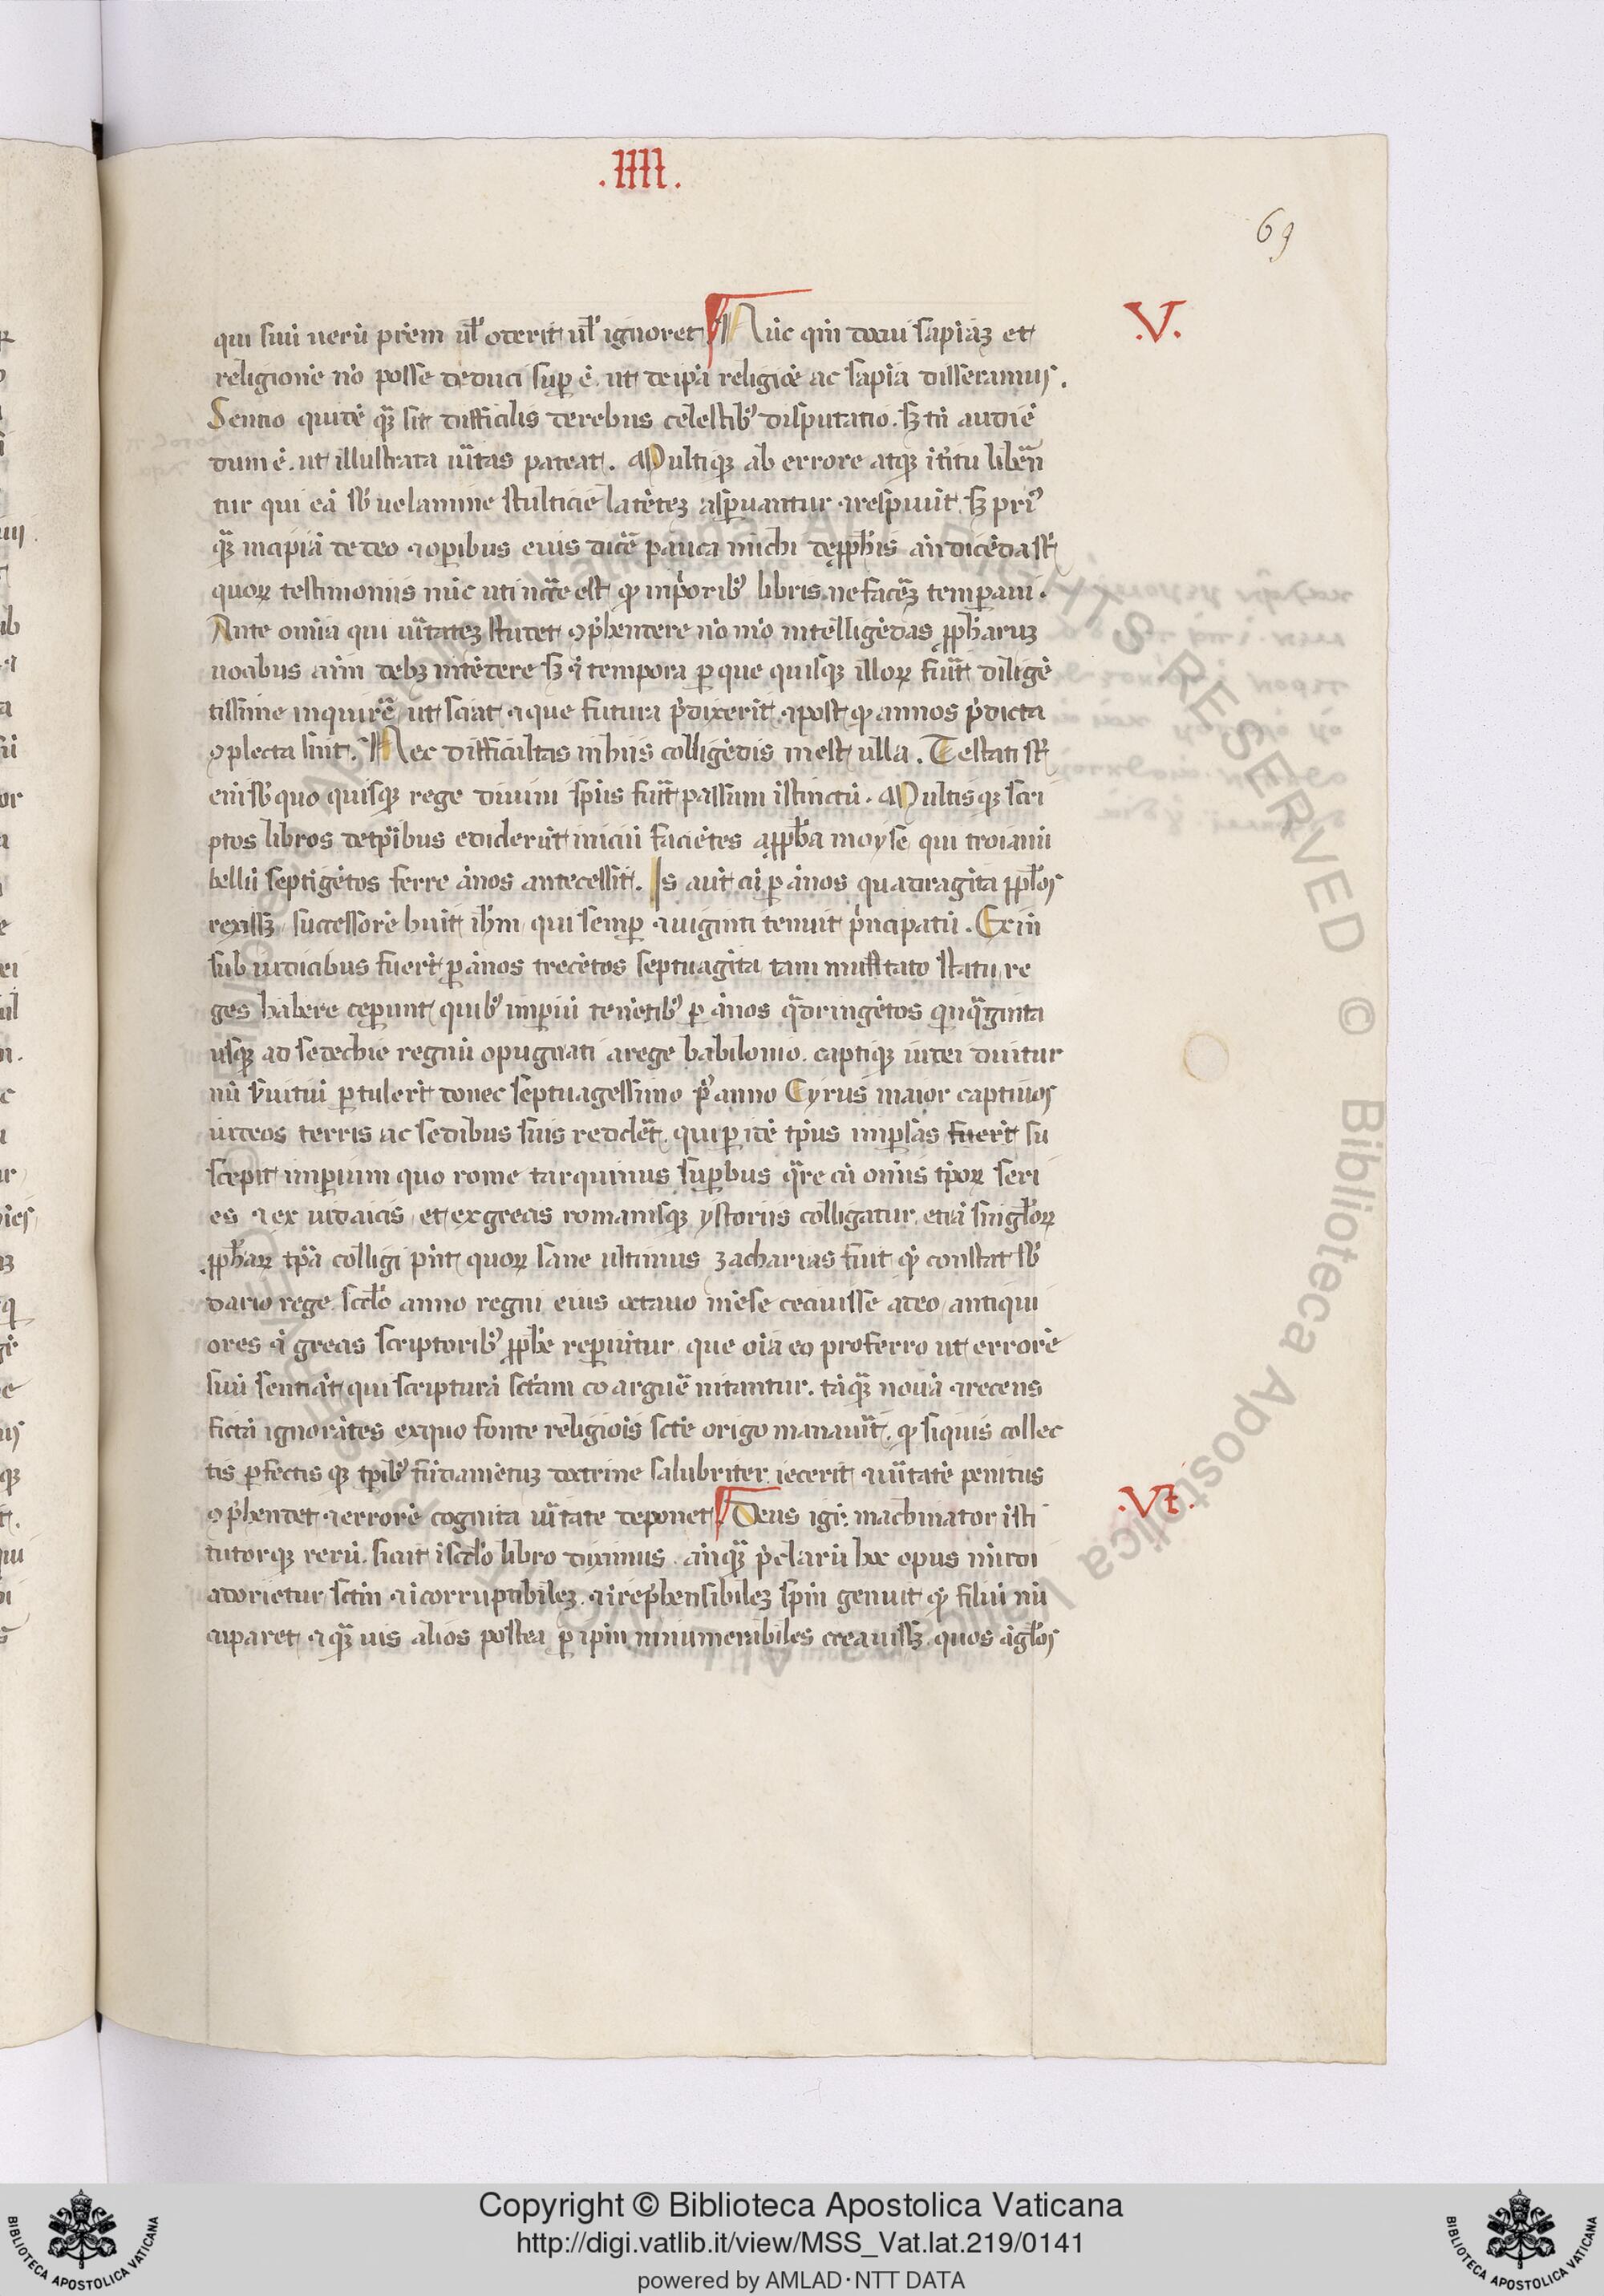 .IIII.
69
V.
qui suũ uerũ prẽm ul̃ oderit ul̃ ignoret Nũc qm̃ docui sapiãꝫ et
religionẽ nõ posse deduci supꝑ ẽ. ut de ipã religiõe ac sapĩa disseramus.
Sentio quidẽ qꝫ̃ sit difficilis de rebus celestibꝰ disputatio. sꝫ tñ audiẽ
dum ẽ. ut illustrata uĩtas pateat. Multiqꝫ ab errore atqꝫ ĩtitu libẽn
tur qui eã sb̾ uelamine stulticie latẽteꝫ asꝑnantur ⁊ respuũt. sꝫ priꝰ
qꝫ̃ incipiã de deo ⁊ oꝑibus eius dicẽ pauca michi de ꝓph̃is añ dicẽda st̃
quoꝝ testimoniis nũc uti nc̃ce est qͥ in p̾oribꝰ libris ne faceꝫ temꝑaui.
Ante omĩa qui uĩtateꝫ studet ꝯp̾hendere nõ mõ intelligẽdas ꝓph̃aruꝫ
uocibus aĩm debꝫ intẽdere sꝫ ⁊ĩ tempora ꝑ que quisqꝫ illoꝝ fuĩt diligẽ
tissime inquirẽ ut sciat ⁊ que futura p̾dixerit ⁊ post qͥ annos p̾dicta
ꝯplecta sint. Nec difficultas in hiis colligẽdis inest ulla. Testati st̃
eñ sb̾ quo quisqꝫ rege diuini sp̃us fuĩt passum ĩstinctũ. Multisqꝫ scri
ptos libros de tp̃ibus ediderũt iniciũ faciẽtes a ꝓph̃a moyse qui troianũ
bellũ septigẽtos ferre ãnos antecessit. Is aut̃ cũ ꝑ ãnos quadragĩta ppl̃os
rexissꝫ successorẽ huit ih̃m qui semꝑ ⁊ uiginti tenuit p̾ncipatũ. Exiñ
sub iudicibus fuerĩt ꝑ ãnos trecẽtos septuagĩta tam muttato statu re
ges habere ceꝑunt quibꝰ imꝑiũ tenẽtibꝰ ꝑ ãnos q̃dringẽtos quiq̃ginta
usqꝫ ad sedechie regnũ opugnati a rege babilonio. captiqꝫ iudei diuitur
nũ s̾uitiũ ꝑtulerĩt donec septuagessimo pꝰ anno Cyrus maior captiuos
iudeos terris ac sedibus suis reddẽt. qui ꝑ idẽ tp̃us imꝑsãs fuerĩt su
scepit imꝑium quo rome tarquinius suꝑbus q̃re cũ omĩs tp̃oꝝ seri
es ⁊ ex iudaicis et ex grecis romanisqꝫ ystoriis colligatur. etiã singl̃oꝝ
ꝓph̃aꝝ tp̃a colligi pñt quoꝝ sane ultimus zacharias fuit qͥ constat sb̾
dario rege. scd̾o anno regni eius octauo mẽse cecinisse adeo antiqui
ores ⁊ĩ grecis scriptoribꝰ ꝓph̃e reꝑiũtur que oĩa eo proferro ut errorẽ
suũ sentiãt qui scripturã sc̃tam coarguẽ nitantur. tãqꝫ̃ nouã ⁊ recens
fictã ignorãtes ex quo fonte religiõis sc̃te origo manauĩt. qͥ siquis collec
tis ꝑfectis qꝫ tp̃ibꝰ fũdamẽtuꝫ doctrine salubriter iecerit ⁊ uĩtatẽ penitus
VI.
ꝯp̾hendet ⁊ errorẽ cognita uĩtate deponet Deus igĩ. machinator ĩsti
tutorqꝫ rerũ. sicut ĩ scd̾o libro diximus. añqꝫ̃ p̾clarũ hoc opus mũdi
adorietur sc̃tm ⁊ ĩcorruptibileꝫ ⁊ ĩrep̾hensibileꝫ sp̃m genuit qͥ filiũ nũ
cuparet ⁊ qꝫ̃uis alios postea ꝑ ip̃m innumerabiles creauissꝫ. quos ãgl̃os
Copyright © Biblioteca Apostolica Vaticana
http://digi.vatlib.it/view/MSS_Vat.lat.219/0141
powered by AMLAD·NTT DATA